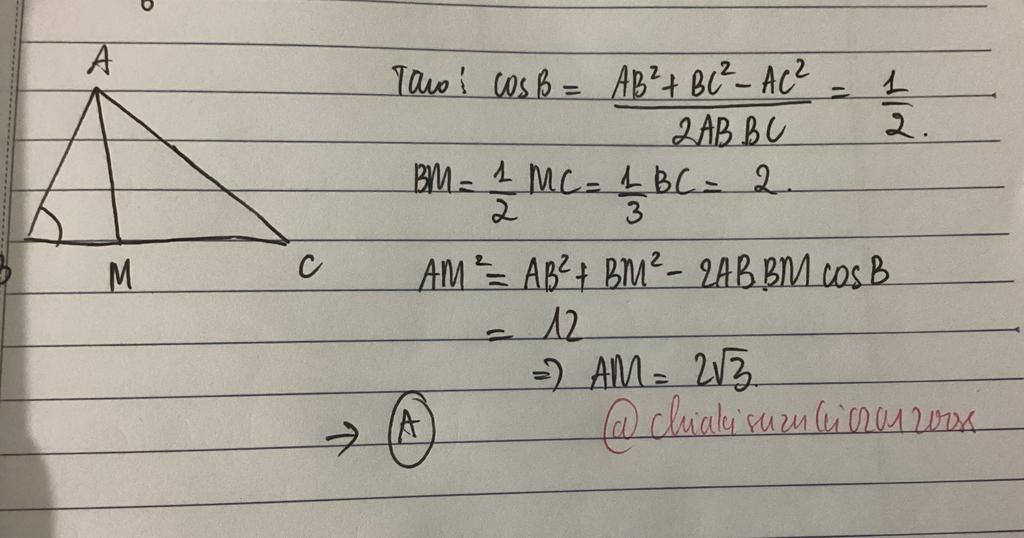 A
B
M
C
cosB = (AB² + BC² - AC²) / (2AB BC) = 1/2.
BM = 1/2 MC = 1/3 BC = 2.
AM² = AB² + BM² - 2AB.BM cosB
= 12
=> AM = 2√3.
→ A